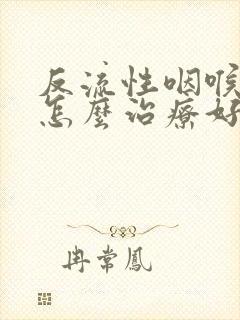 反流性咽喉
怎麼治療好
冉常鳳